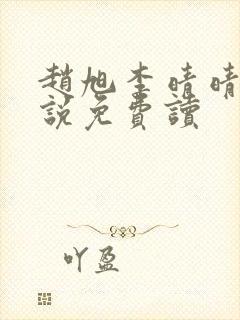 趙旭李晴晴
說免費讀
吖盈